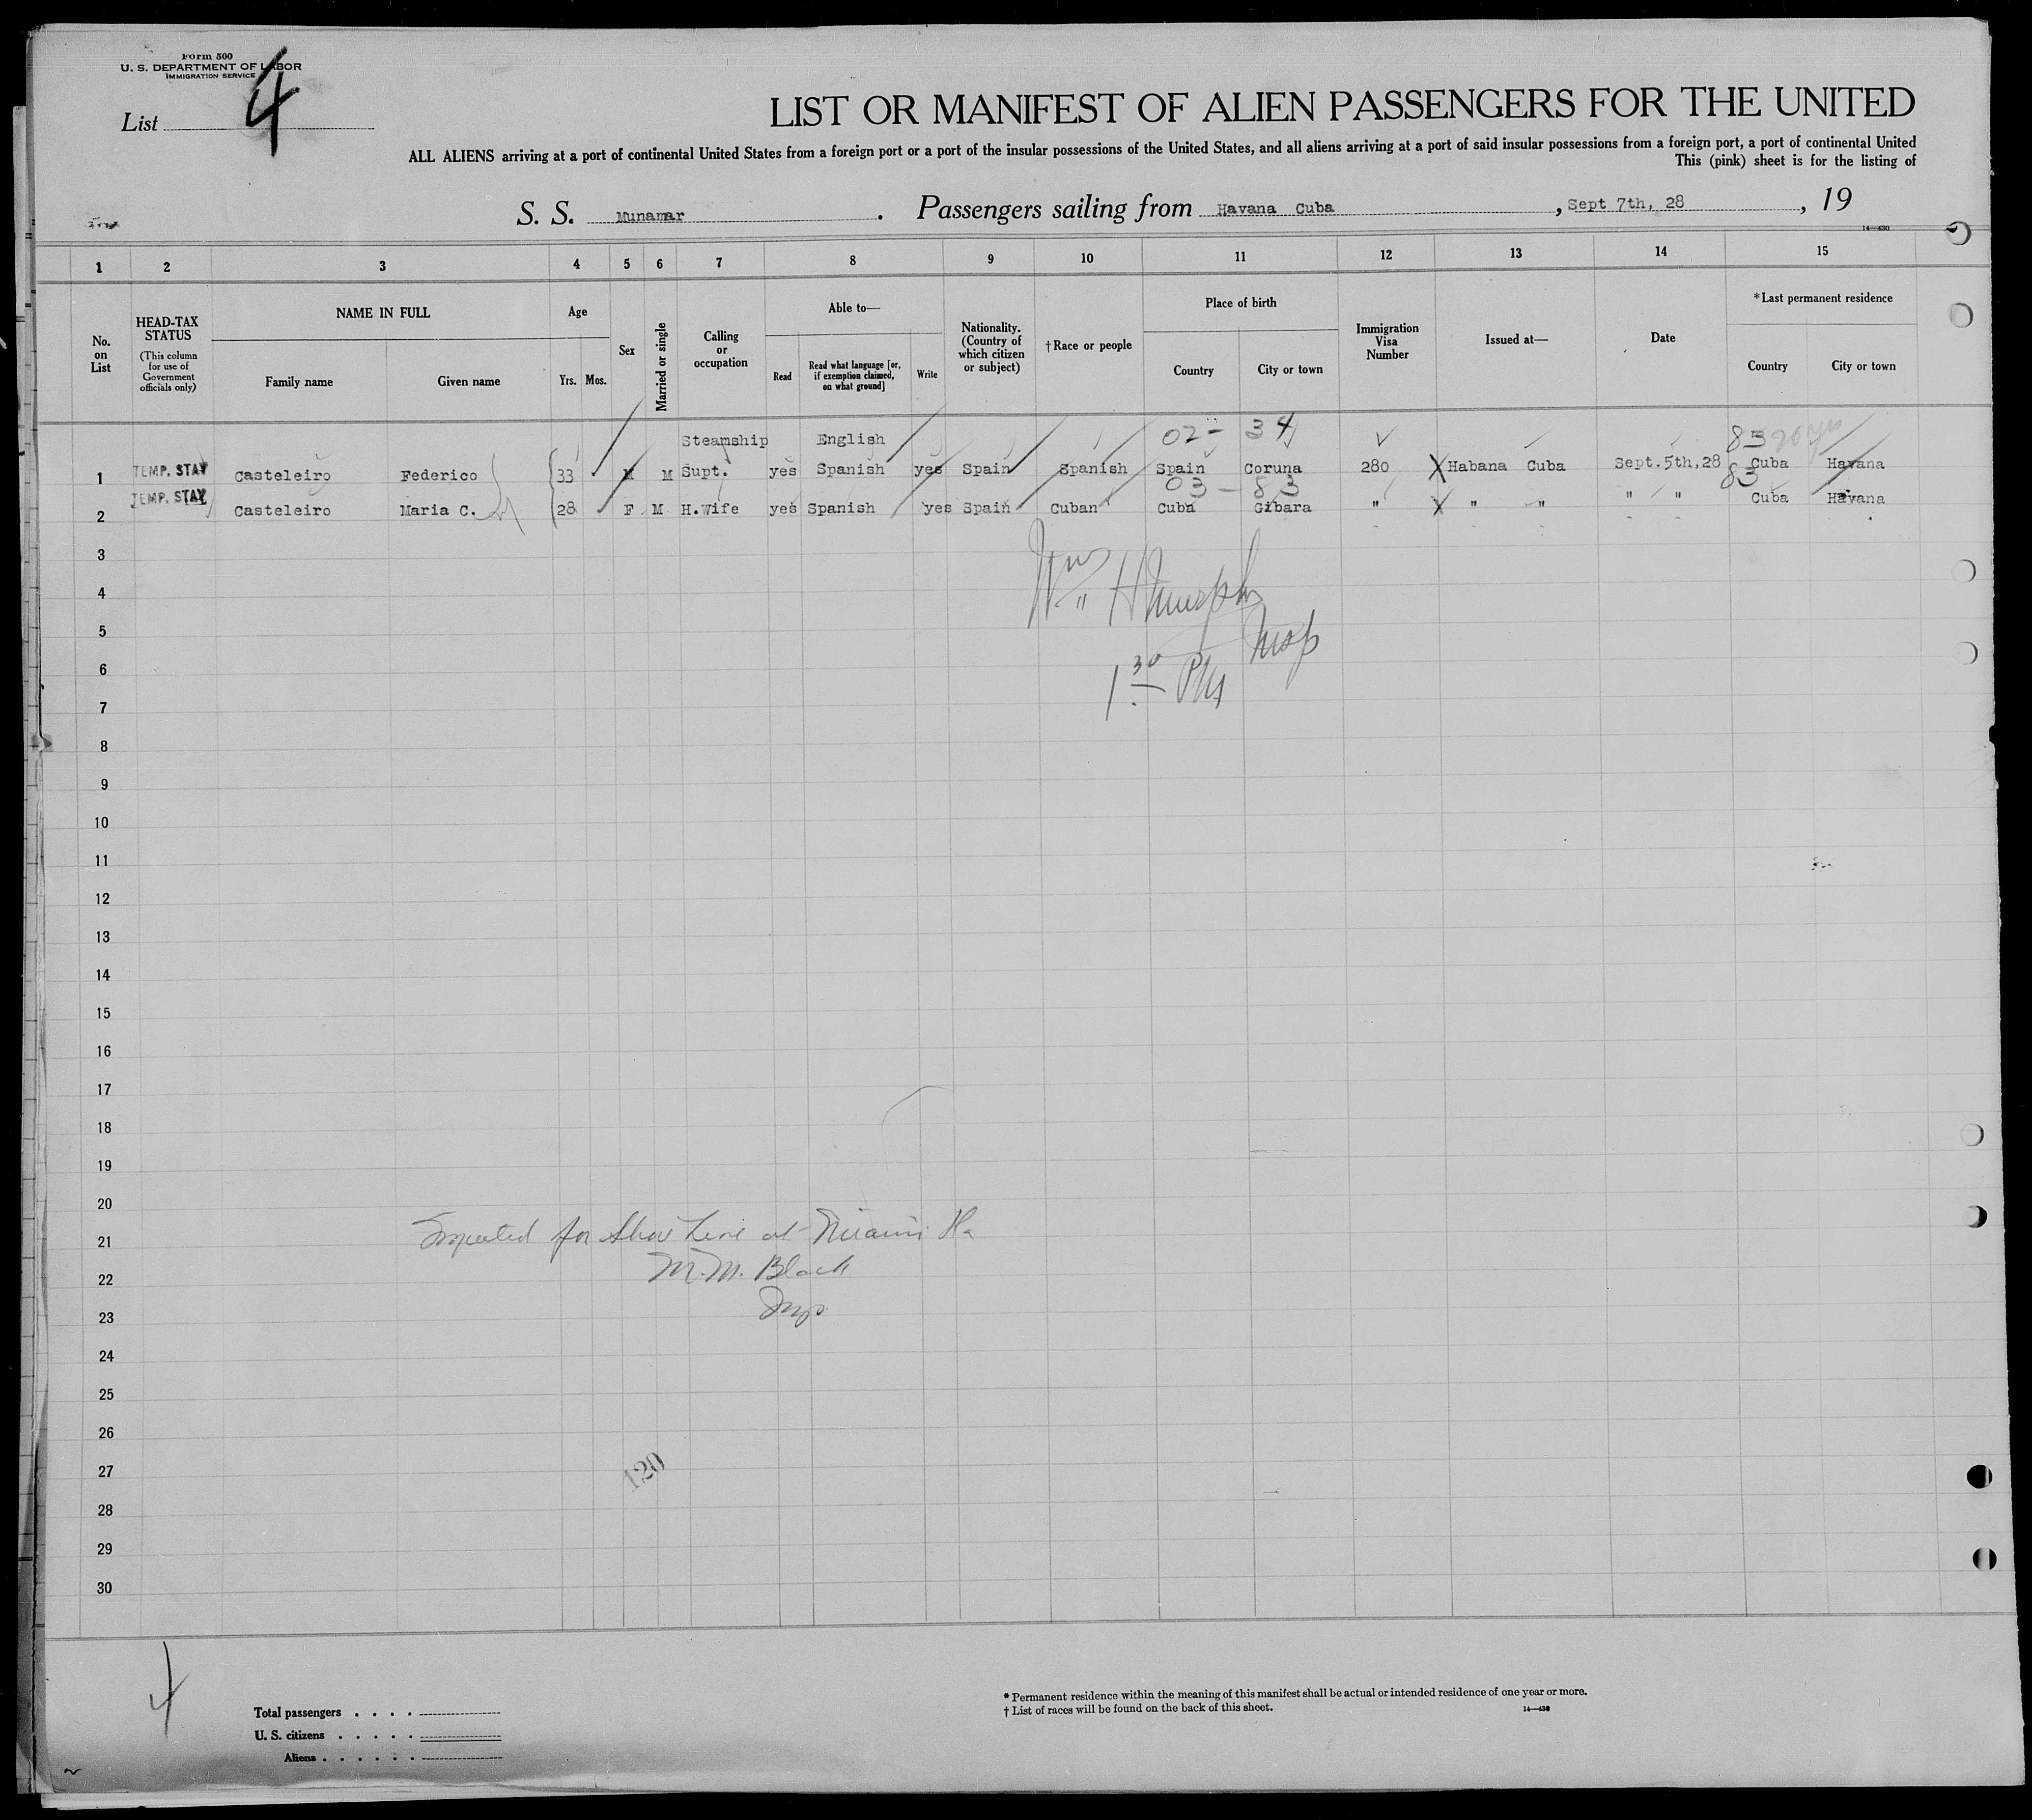 Form 500
U. S. DEPARTMENT OF LABOR
IMMIGRATION SERVICE
List 4
LIST OR MANIFEST OF ALIEN PASSENGERS FOR THE UNITED
ALL ALIENS arriving at a port of continental United States from a foreign port or a port of the insular possessions of the United States, and all aliens arriving at a port of said insular possessions from a foreign port, a port of continental United
This (pink) sheet is for the listing of
S. S. Munamar . Passengers sailing from Havana Cuba , Sept 7th, 28 , 19
14—430
1 2 3 4 5 6 7 8 9 10 11 12 13 14 15
No. on List
HEAD-TAX STATUS
(This column for use of Government officials only)
NAME IN FULL
Family name Given name
Age
Yrs. Mos.
Sex
Married or single
Calling or occupation
Able to—
Read
Read what language [or, if exemption claimed, on what ground]
Write
Nationality. (Country of which citizen or subject)
†Race or people
Place of birth
Country City or town
Immigration Visa Number
Issued at—
Date
*Last permanent residence
Country City or town
02 - 34 83
Steamship English
1 TEMP. STAY Casteleiro Federico 33 M M Supt. yes Spanish yes Spain Spanish Spain Coruna 280 Habana Cuba Sept.5th,28 Cuba Havana
03 - 83 83
2 TEMP. STAY Casteleiro Maria C. 28 F M H.Wife yes Spanish yes Spain Cuban Cuba Gibara " " " " " Cuba Havana
3
Wm H Murphy
4
5
Insp
6
1 30 PM
7
8
9
10
11
12
13
14
15
16
17
18
19
20
21 for Line at Miami Fla
22 M. M. Black
23 Insp.
24
25
26
27 120
28
29
30
4
Total passengers
U. S. citizens
Aliens
* Permanent residence within the meaning of this manifest shall be actual or intended residence of one year or more.
† List of races will be found on the back of this sheet.
14—430